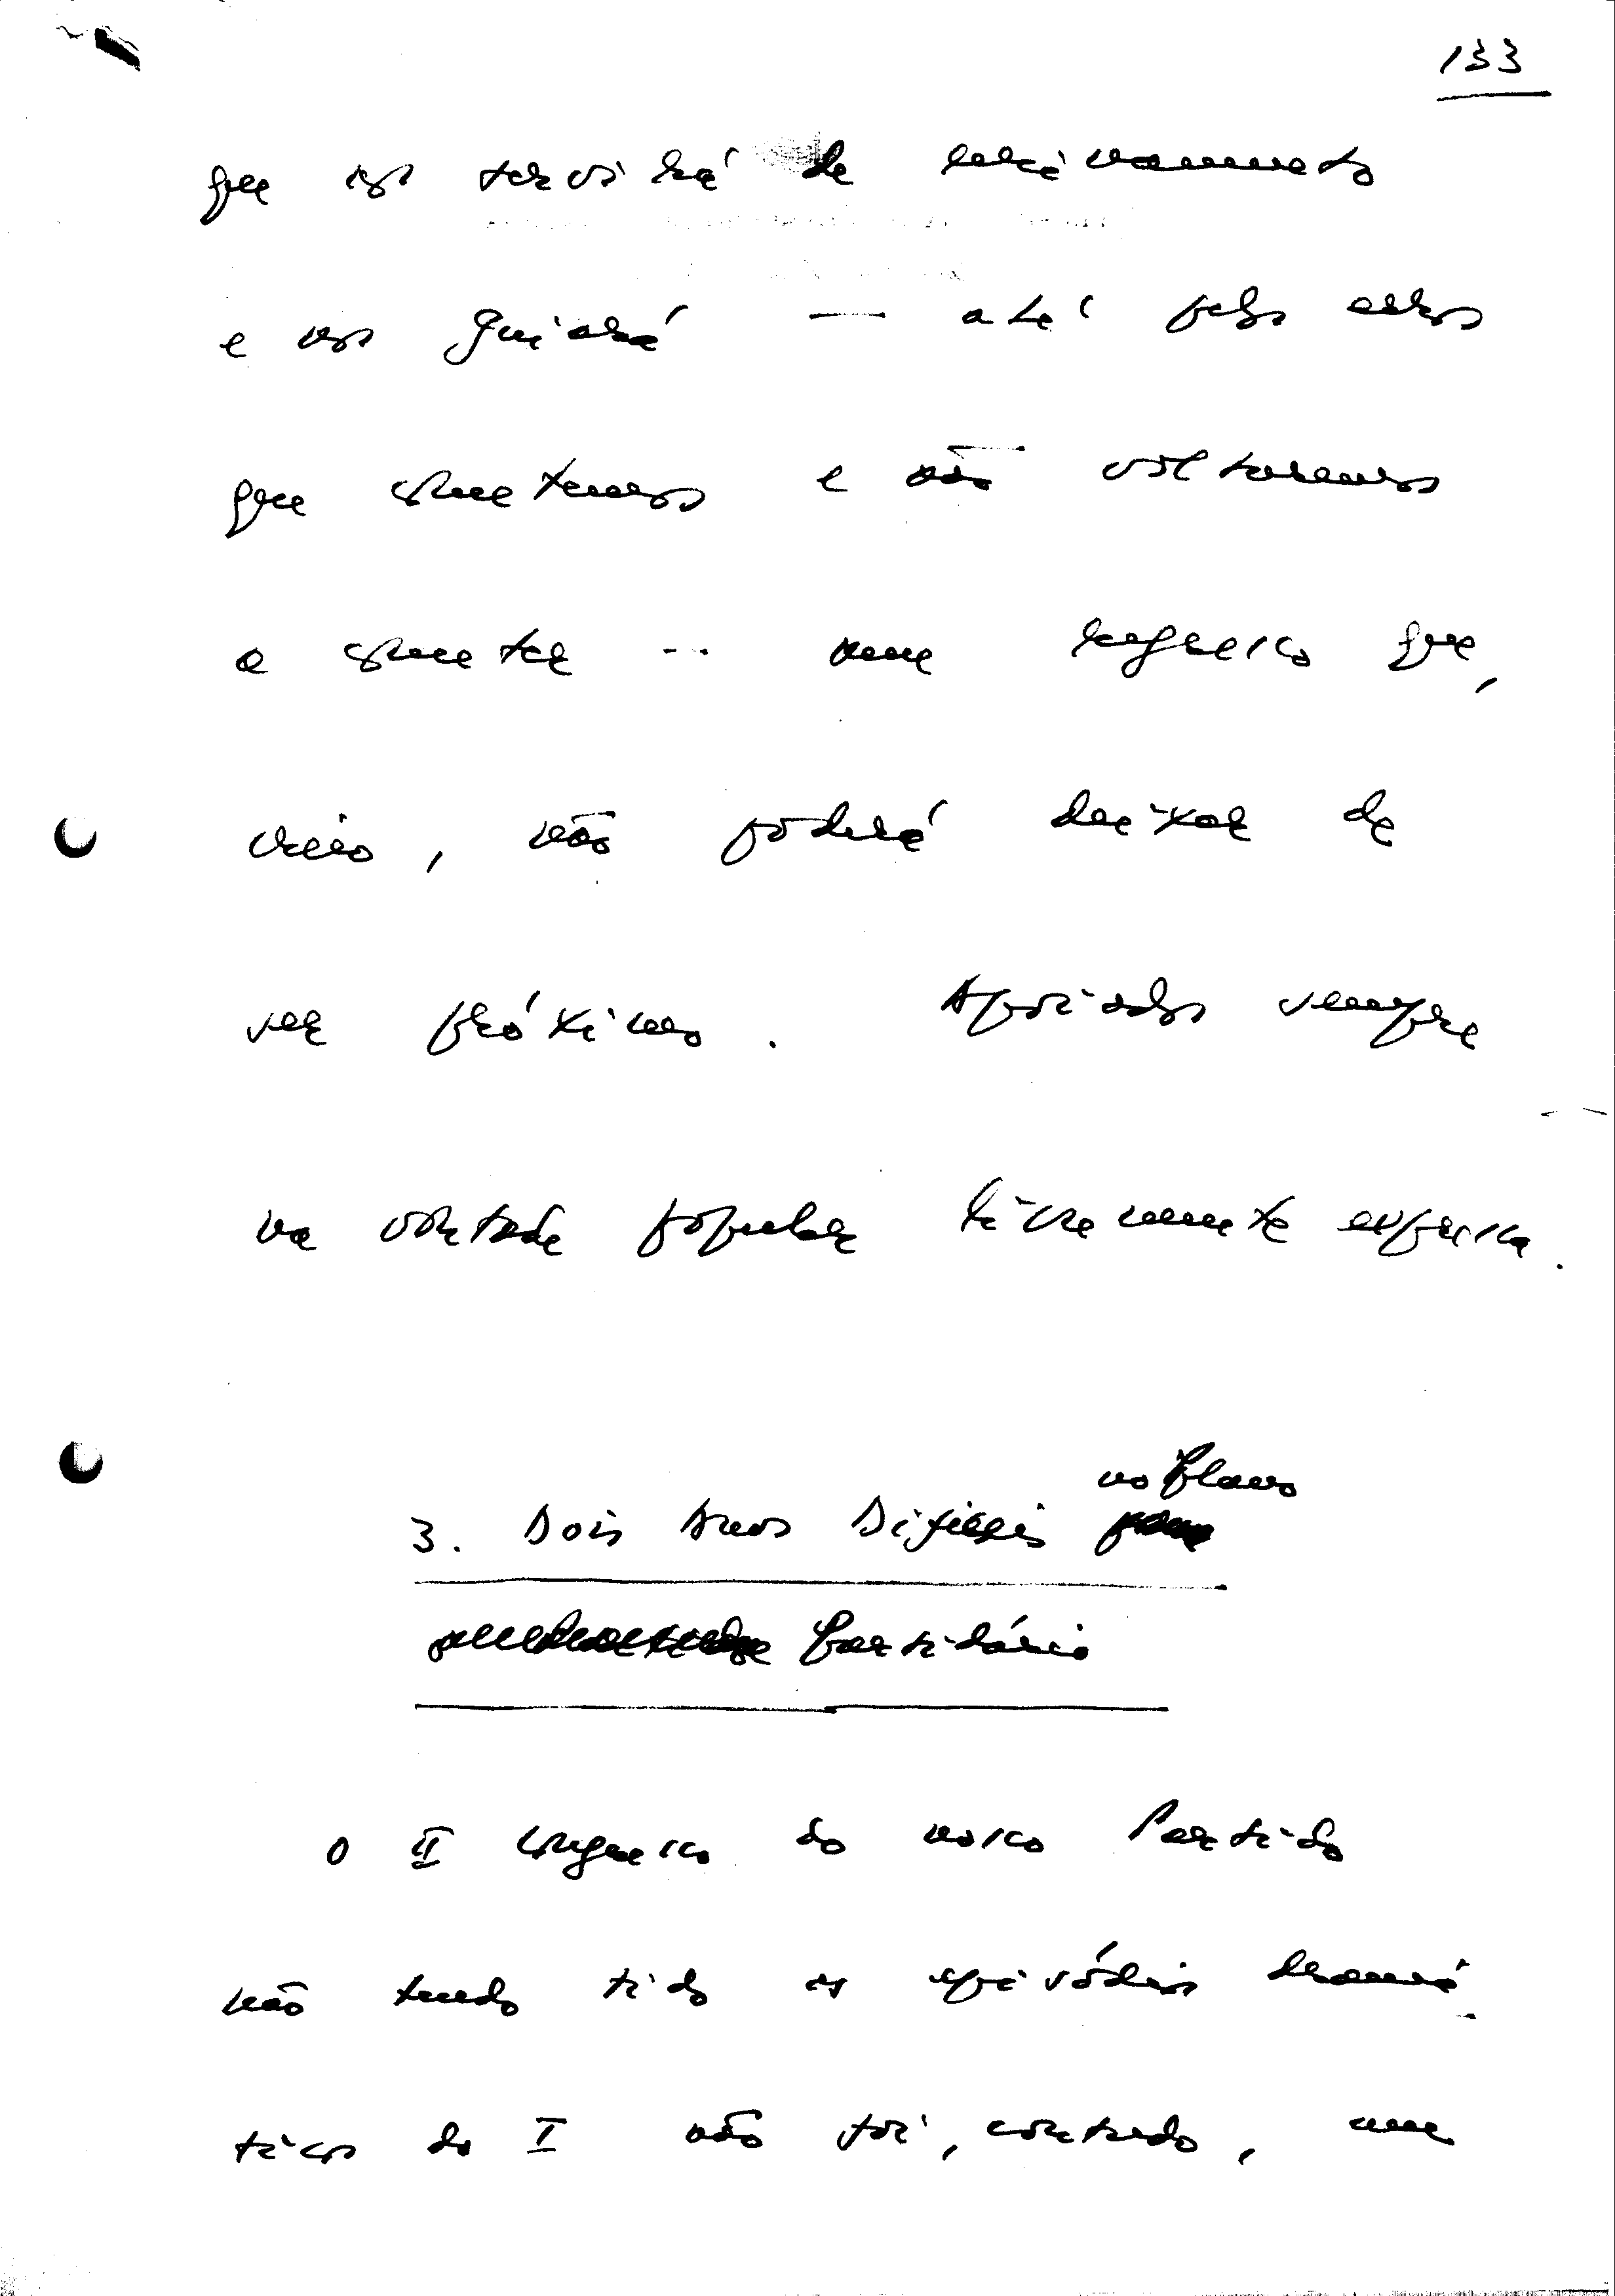 133
que nos servirá de ensinamento
e nos guiará — até pelos erros
que cometemos e não voltaremos
a cometer -- num regresso que,
creio, não poderá deixar de
ser próximo. Apoiados sempre
na vontade popular livremente expressa.
no Plano
3. Dois Anos Difíceis
Partidário
O II Congresso do nosso Partido
não tendo tido os episódios dramá-
ticos do I não foi, contudo, um